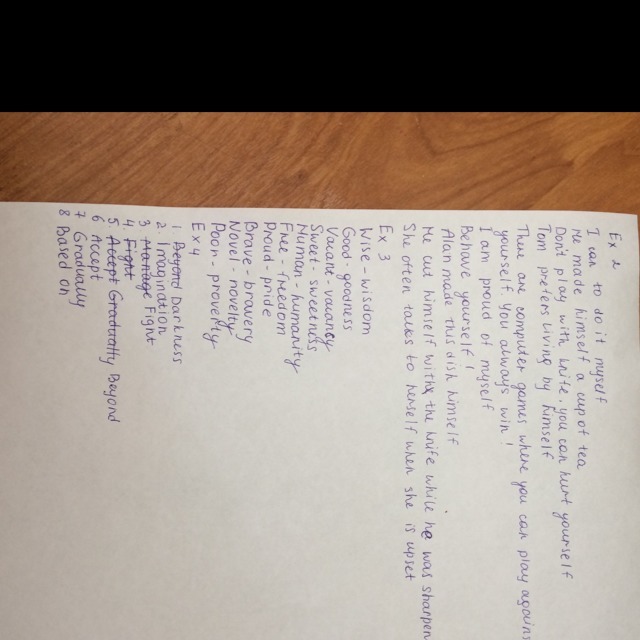 Ex 2
I can to do it myself
He made himself a cup of tea
Don't play with knife, you can hurt yourself
Tom prefers living by himself
There are computer games where you can play agains
yourself. You always win!
I am proud of myself
Behave yourself!
Alan made this dish himself
He cut himself with the knife while he was sharpen
She often talks to herself when she is upset
Ex 3
Wise - wisdom
Good - goodness
Vacant - vacancy
Sweet - sweetness
Human - humanity
Free - freedom
Proud - pride
Brave - bravery
Novel - novelty
Poor - proverty
Ex 4
1. Beyond Darkness
2. Imagination
3. Manage Fight
4. Fight
5. Accept Greatly Beyond
6 Accept
7 Gradually
8 Based on